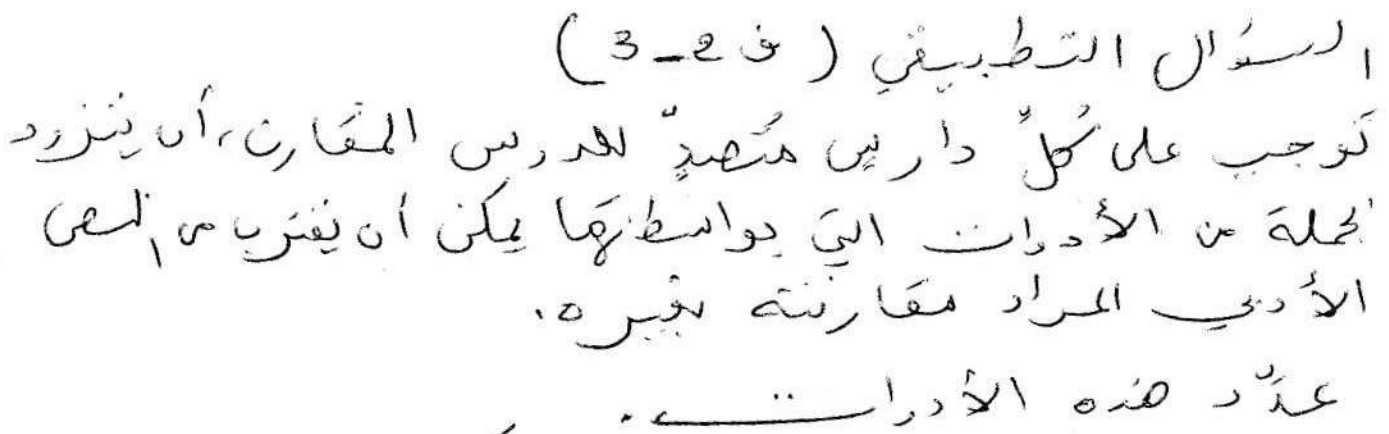 السؤال التطبيقي ( ف 2-3 )
توجب على كُلِّ دارسٍ مُتصدٍّ للدرس المقارن، أن يتزود
بجملة من الأدوات التي بواسطتها يمكن أن يقترب من النص
الأدبي المراد مقارنته بغيره.
عدّد هذه الأدوات.